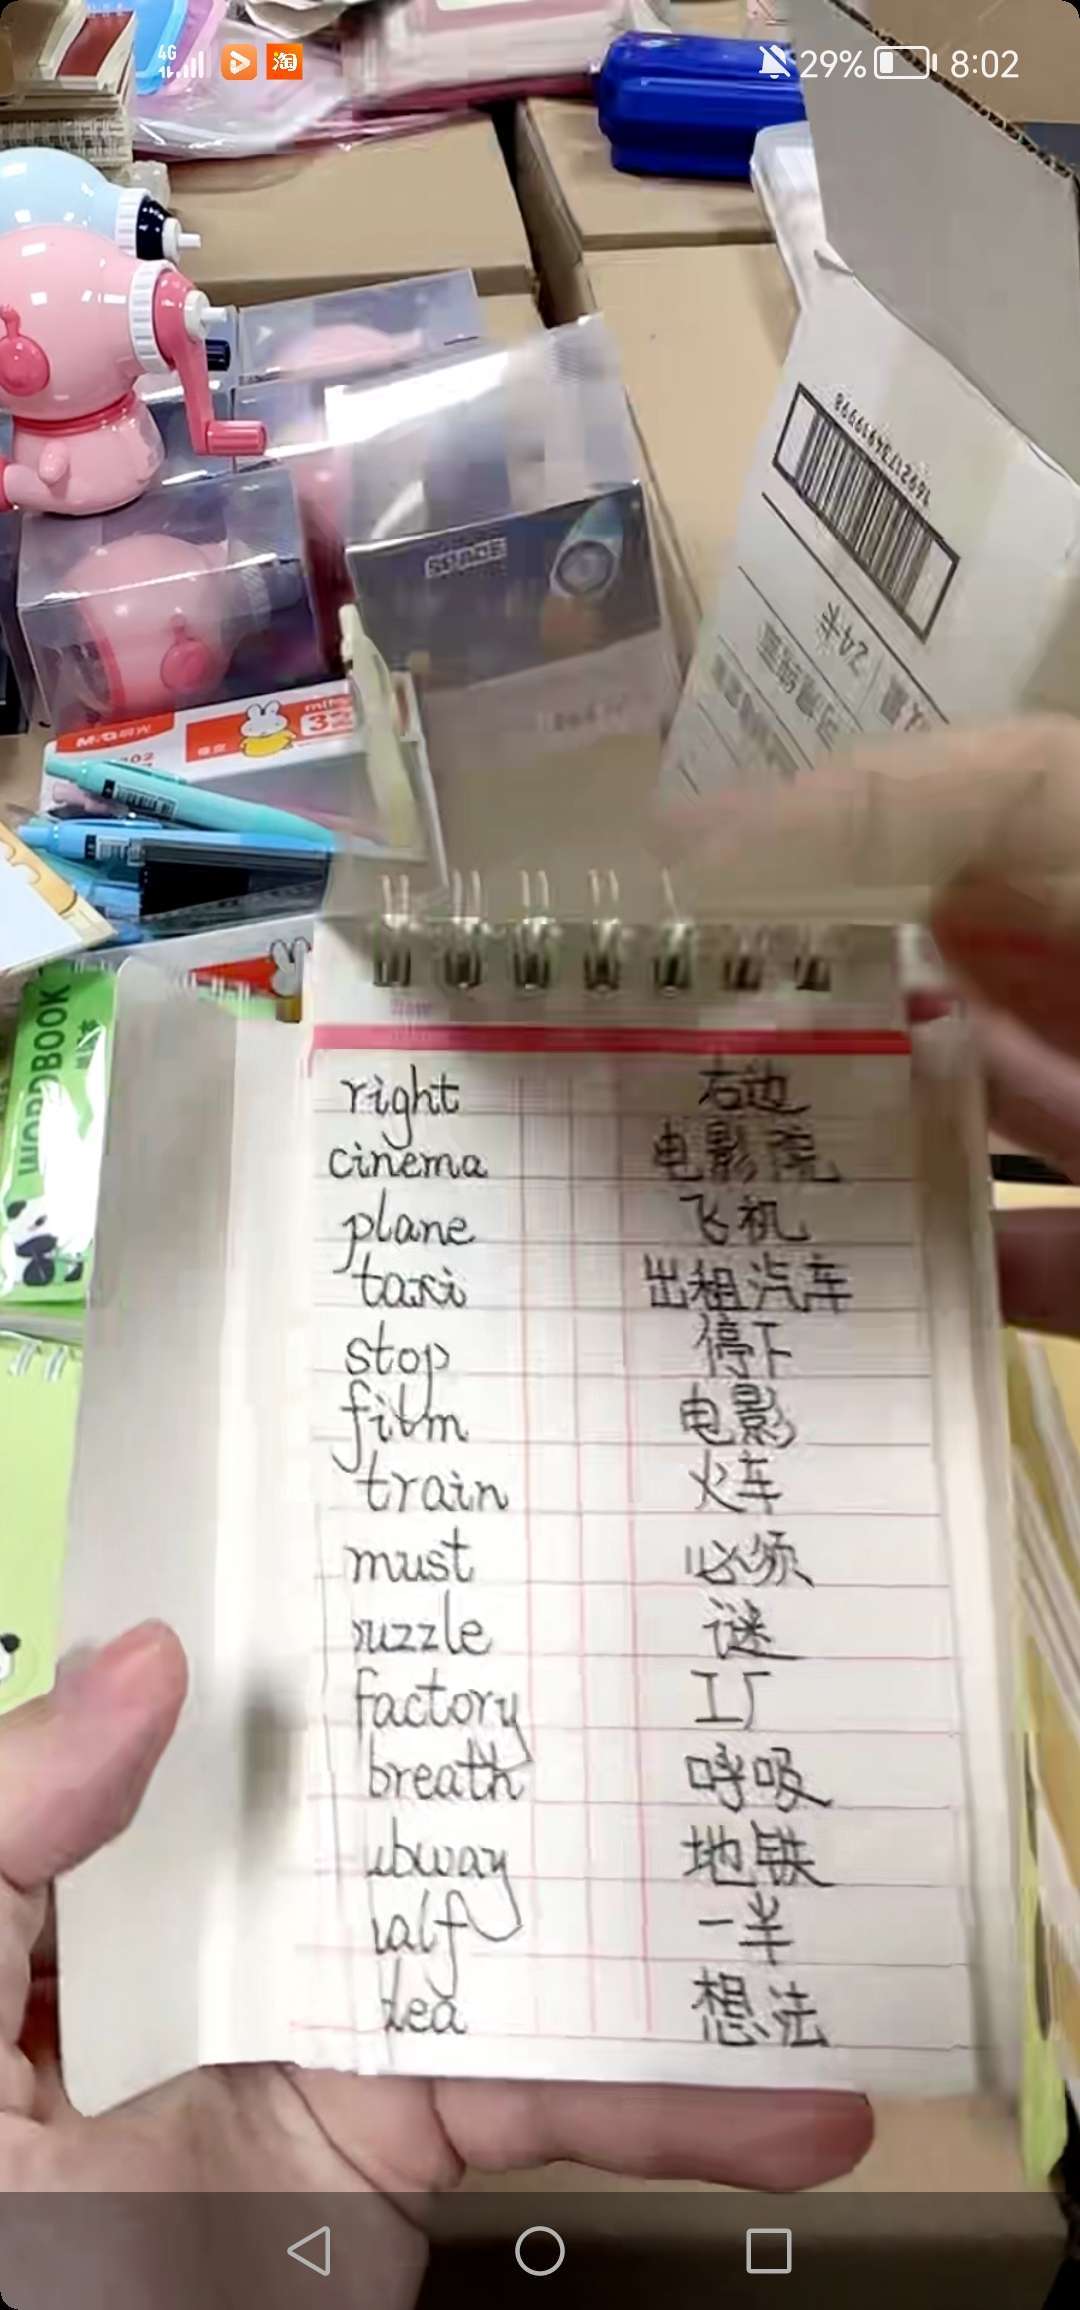 4G 淘 29% 8:02
369217364919998
24卡
M&G晨光
miffy
WORDBOOK
right 右边
cinema 电影院
plane 飞机
taxi 出租汽车
stop 停下
film 电影
train 火车
must 必须
uzzle 谜
factory 工厂
breath 呼吸
ubway 地铁
alf 一半
dea 想法